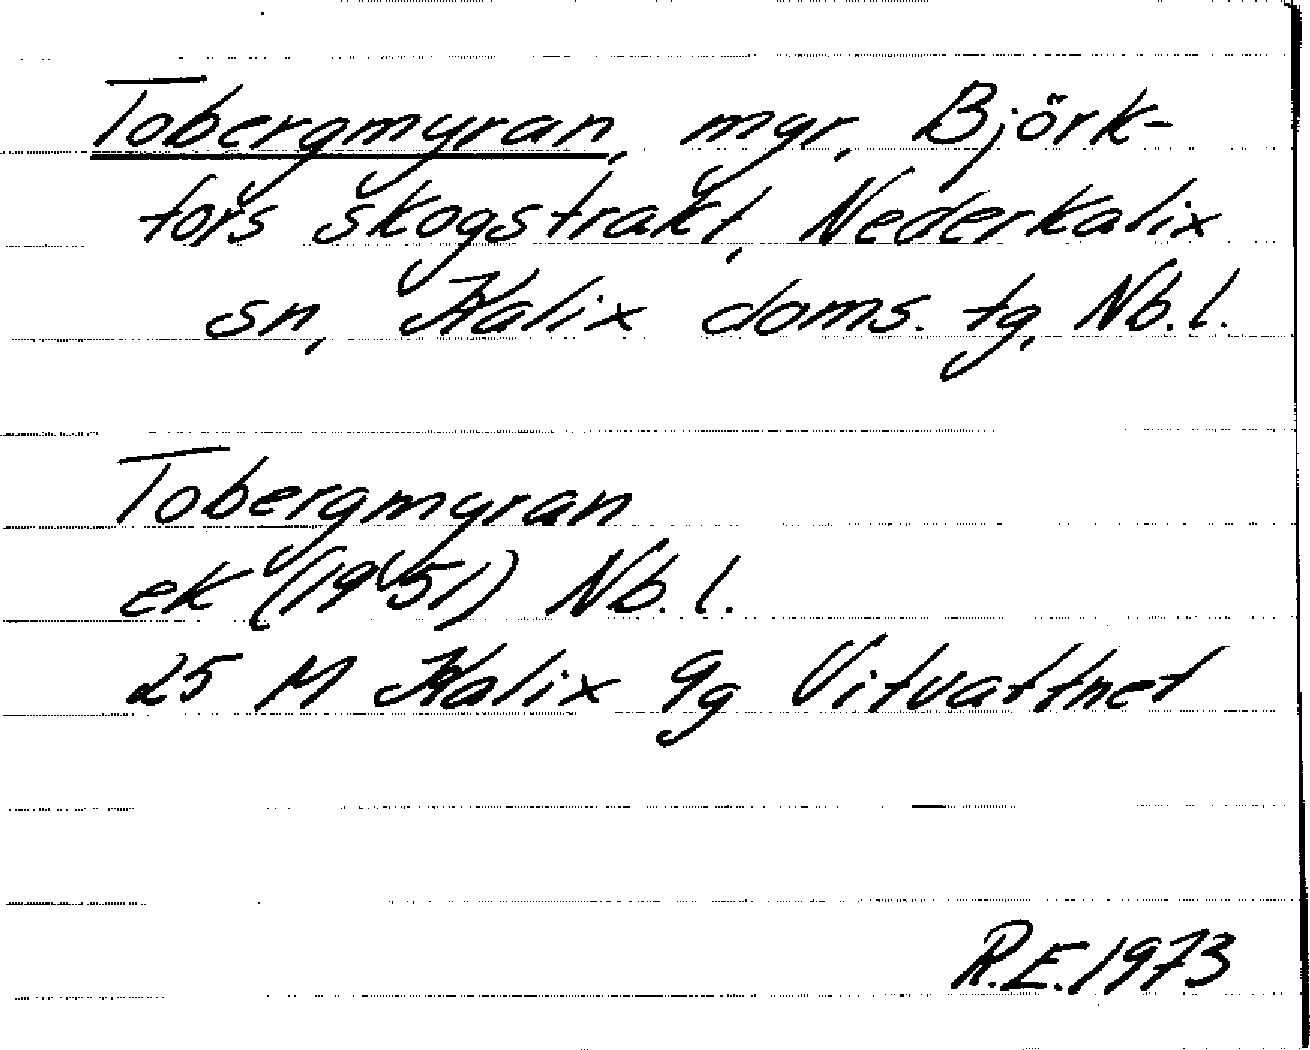 Tobergmyran, myr, Björk-
fors skogstrakt, Nederkalix
sn, Kalix doms. tg, Nb.l.
Tobergmyran
ek (1951) Nb.l.
25 M Kalix 9g Vitvattnet
R.E.1973